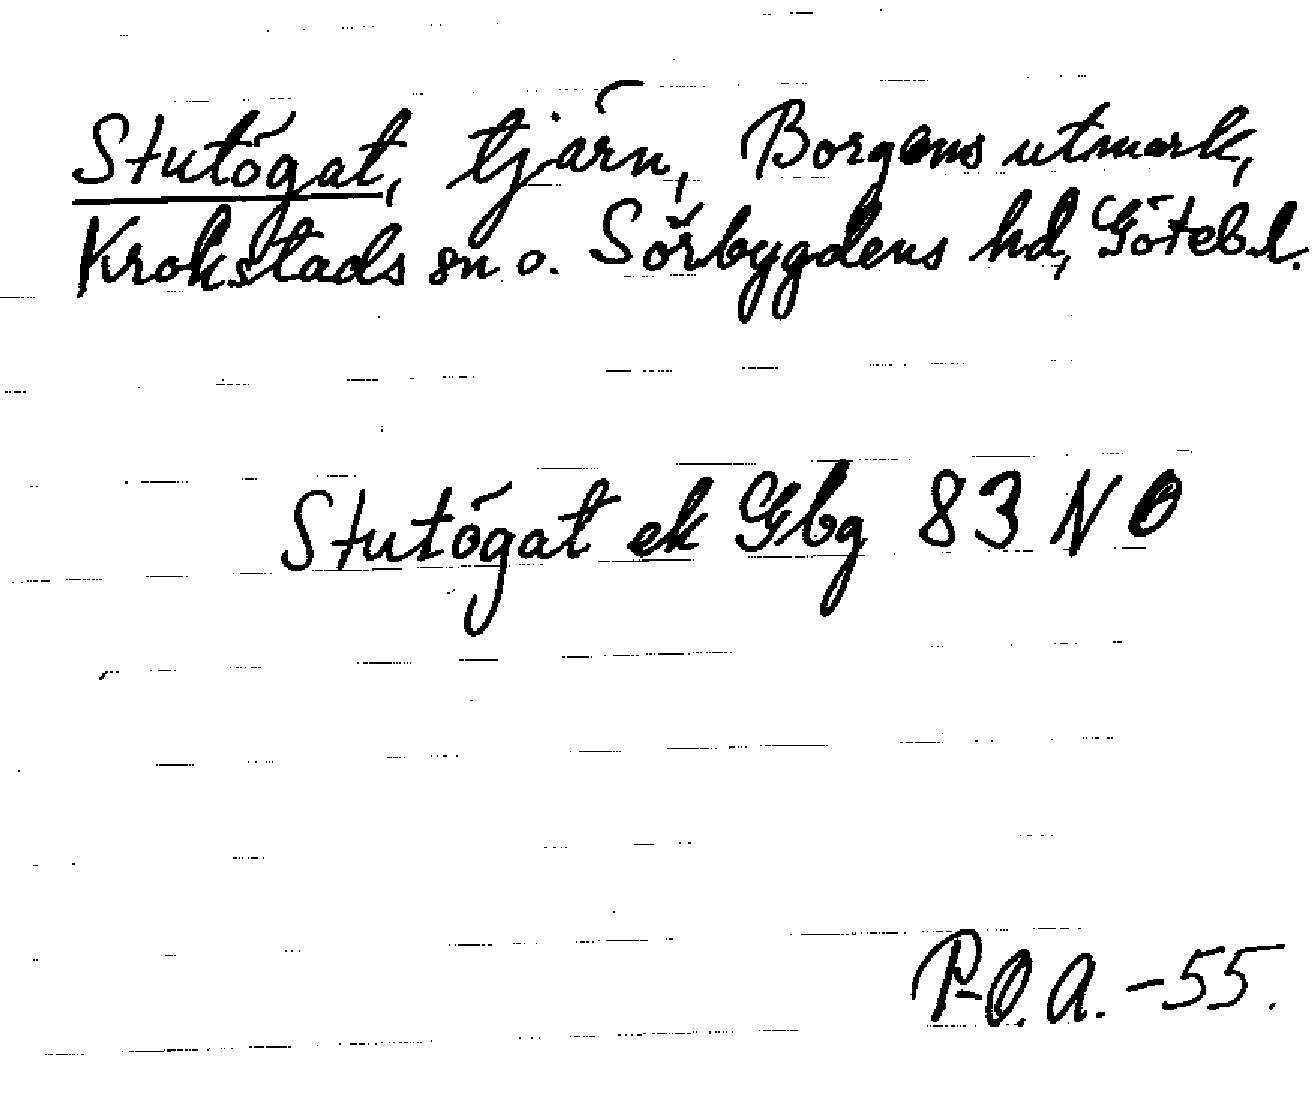 Stutögat, tjärn, Borgens utmark,
Krokstads sn o. Sörbygdens hd, Göteb.l.
Stutögat ek Gbg 83 NO
P-O.A. -55.